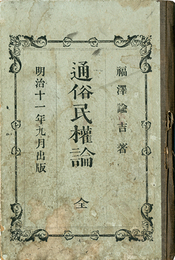 福澤諭吉著
通俗民權論 全
明治十一年九月出版